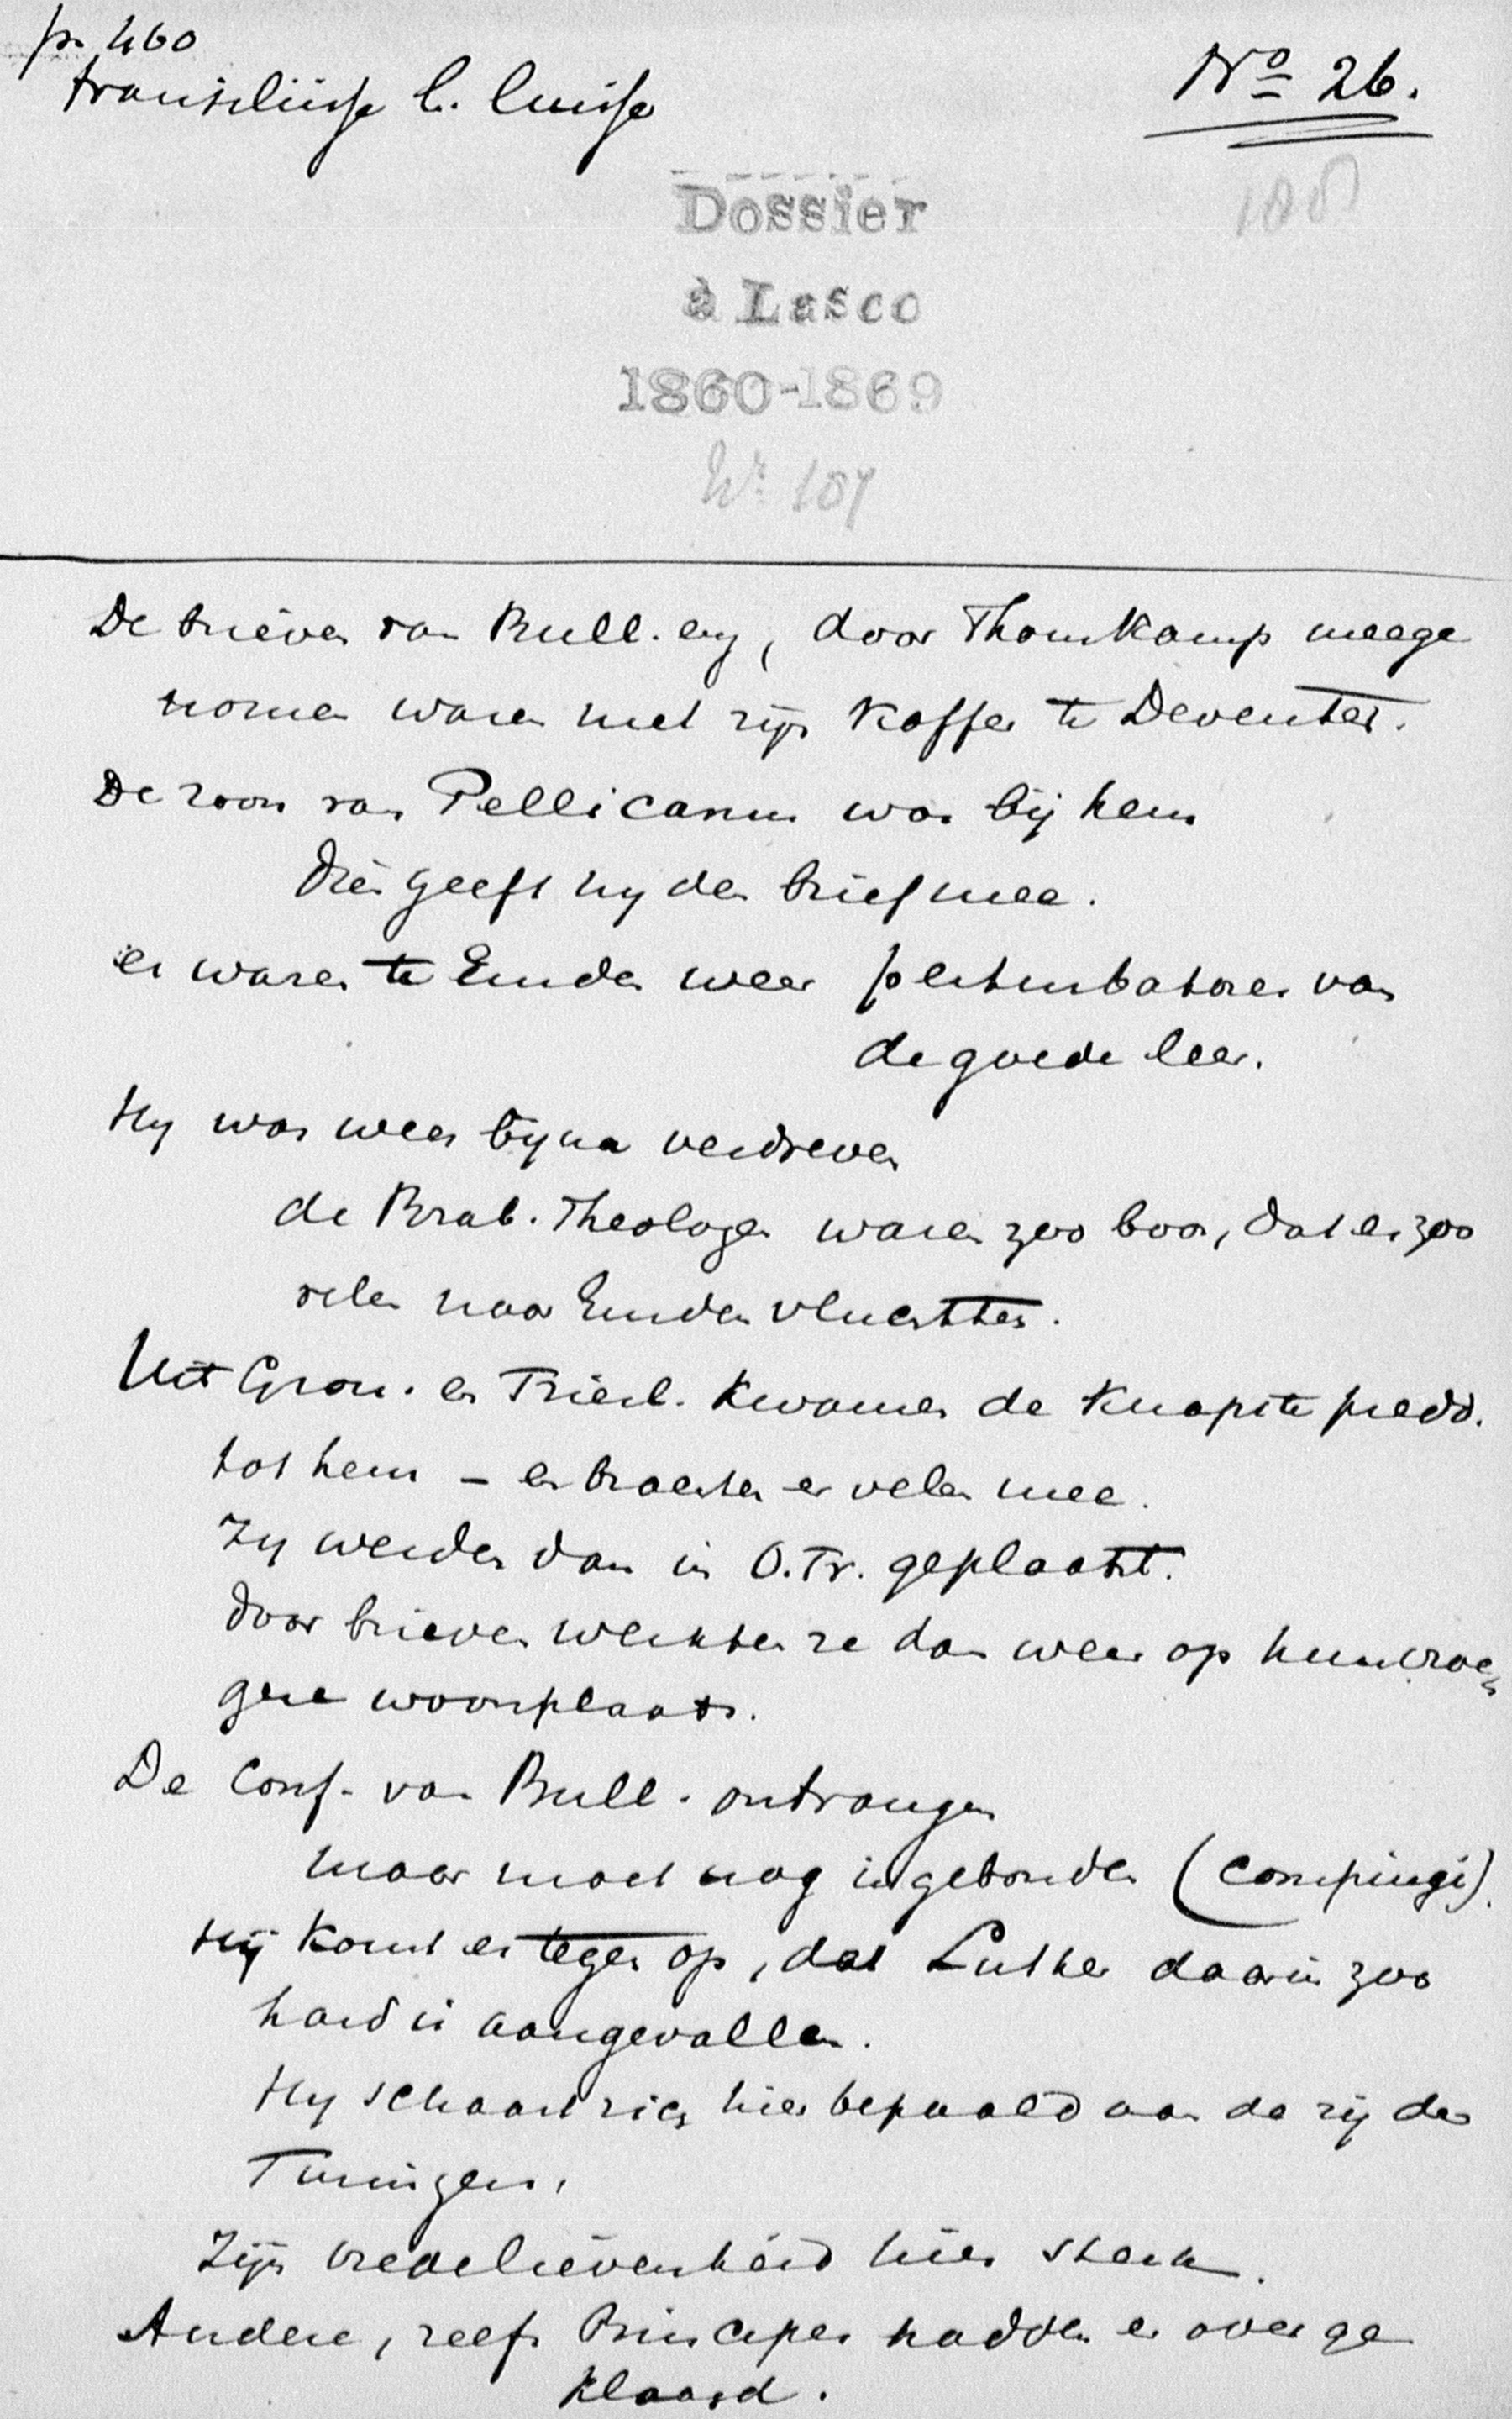 p. 460
No 26.
Dossier
à Lasco
1860-1869
De brieven van Bull. en, door Thomkamp meege
nomen waren met zijn koffer te Deventer.
De zoon van Pellicanus was bij hem
Dien geeft hy den brief mee.
er waren te Emden weer perturbatores van
de goede leer.
Hy was weer byna verdreven
de Brab. Theologen waren zoo boos, dat er zoo
velen naar Emden vluchtten.
Uit Gron. en Friesl. kwamen de knapste predd.
tot hem – en brachten er velen mee.
Zy werden dan in O. Fr. geplaatst.
door brieven werkten ze dan weer op hun vroe-
gere woonplaats.
De Conf. van Bull. ontvangen
maar moet nog ingebonden (compingi).
Hij komt er tegen op, dat Luther daarin zoo
hard is aangevallen.
Hy schaart zich hier bepaald aan de zij der
Zijn vredelievenheid hier sterk.
Andere, zelfs Principes hadden er over ge
klaagd.